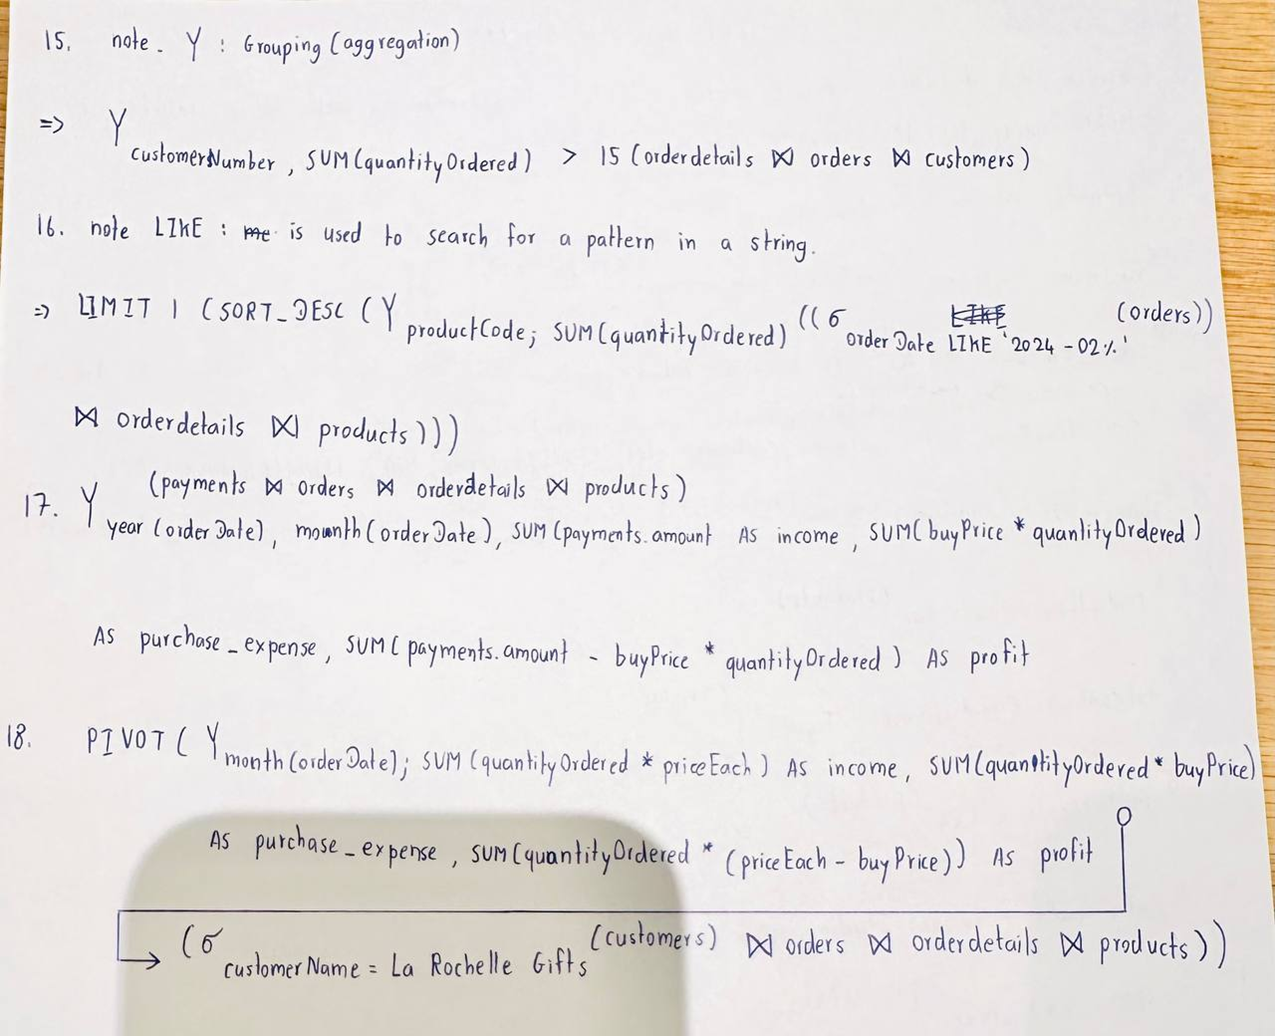 15. note. γ : Grouping (aggregation)
=> γ customerNumber, SUM(quantityOrdered) > 15 (orderdetails ⋈ orders ⋈ customers)
16. note LIKE : me is used to search for a pattern in a string.
=> LIMIT 1 (SORT_DESC (γ productCode; SUM(quantityOrdered) ((σ orderDate LIKE '2024-02%' LIKE (orders))
⋈ orderdetails ⋈ products)))
17. γ (payments ⋈ orders ⋈ orderdetails ⋈ products)
year (orderDate), mounth (orderDate), SUM (payments.amount As income, SUM(buyPrice * quantityOrdered)
As purchase_expense, SUM( payments.amount - buyPrice * quantityOrdered) As profit
18. PIVOT ( γ month(orderDate); SUM (quantityOrdered * priceEach) As income, SUM(quantityOrdered * buyPrice)
As purchase_expense, SUM(quantityOrdered * (priceEach - buyPrice)) As profit
(σ customerName = La Rochelle Gifts (customers) ⋈ orders ⋈ orderdetails ⋈ products))